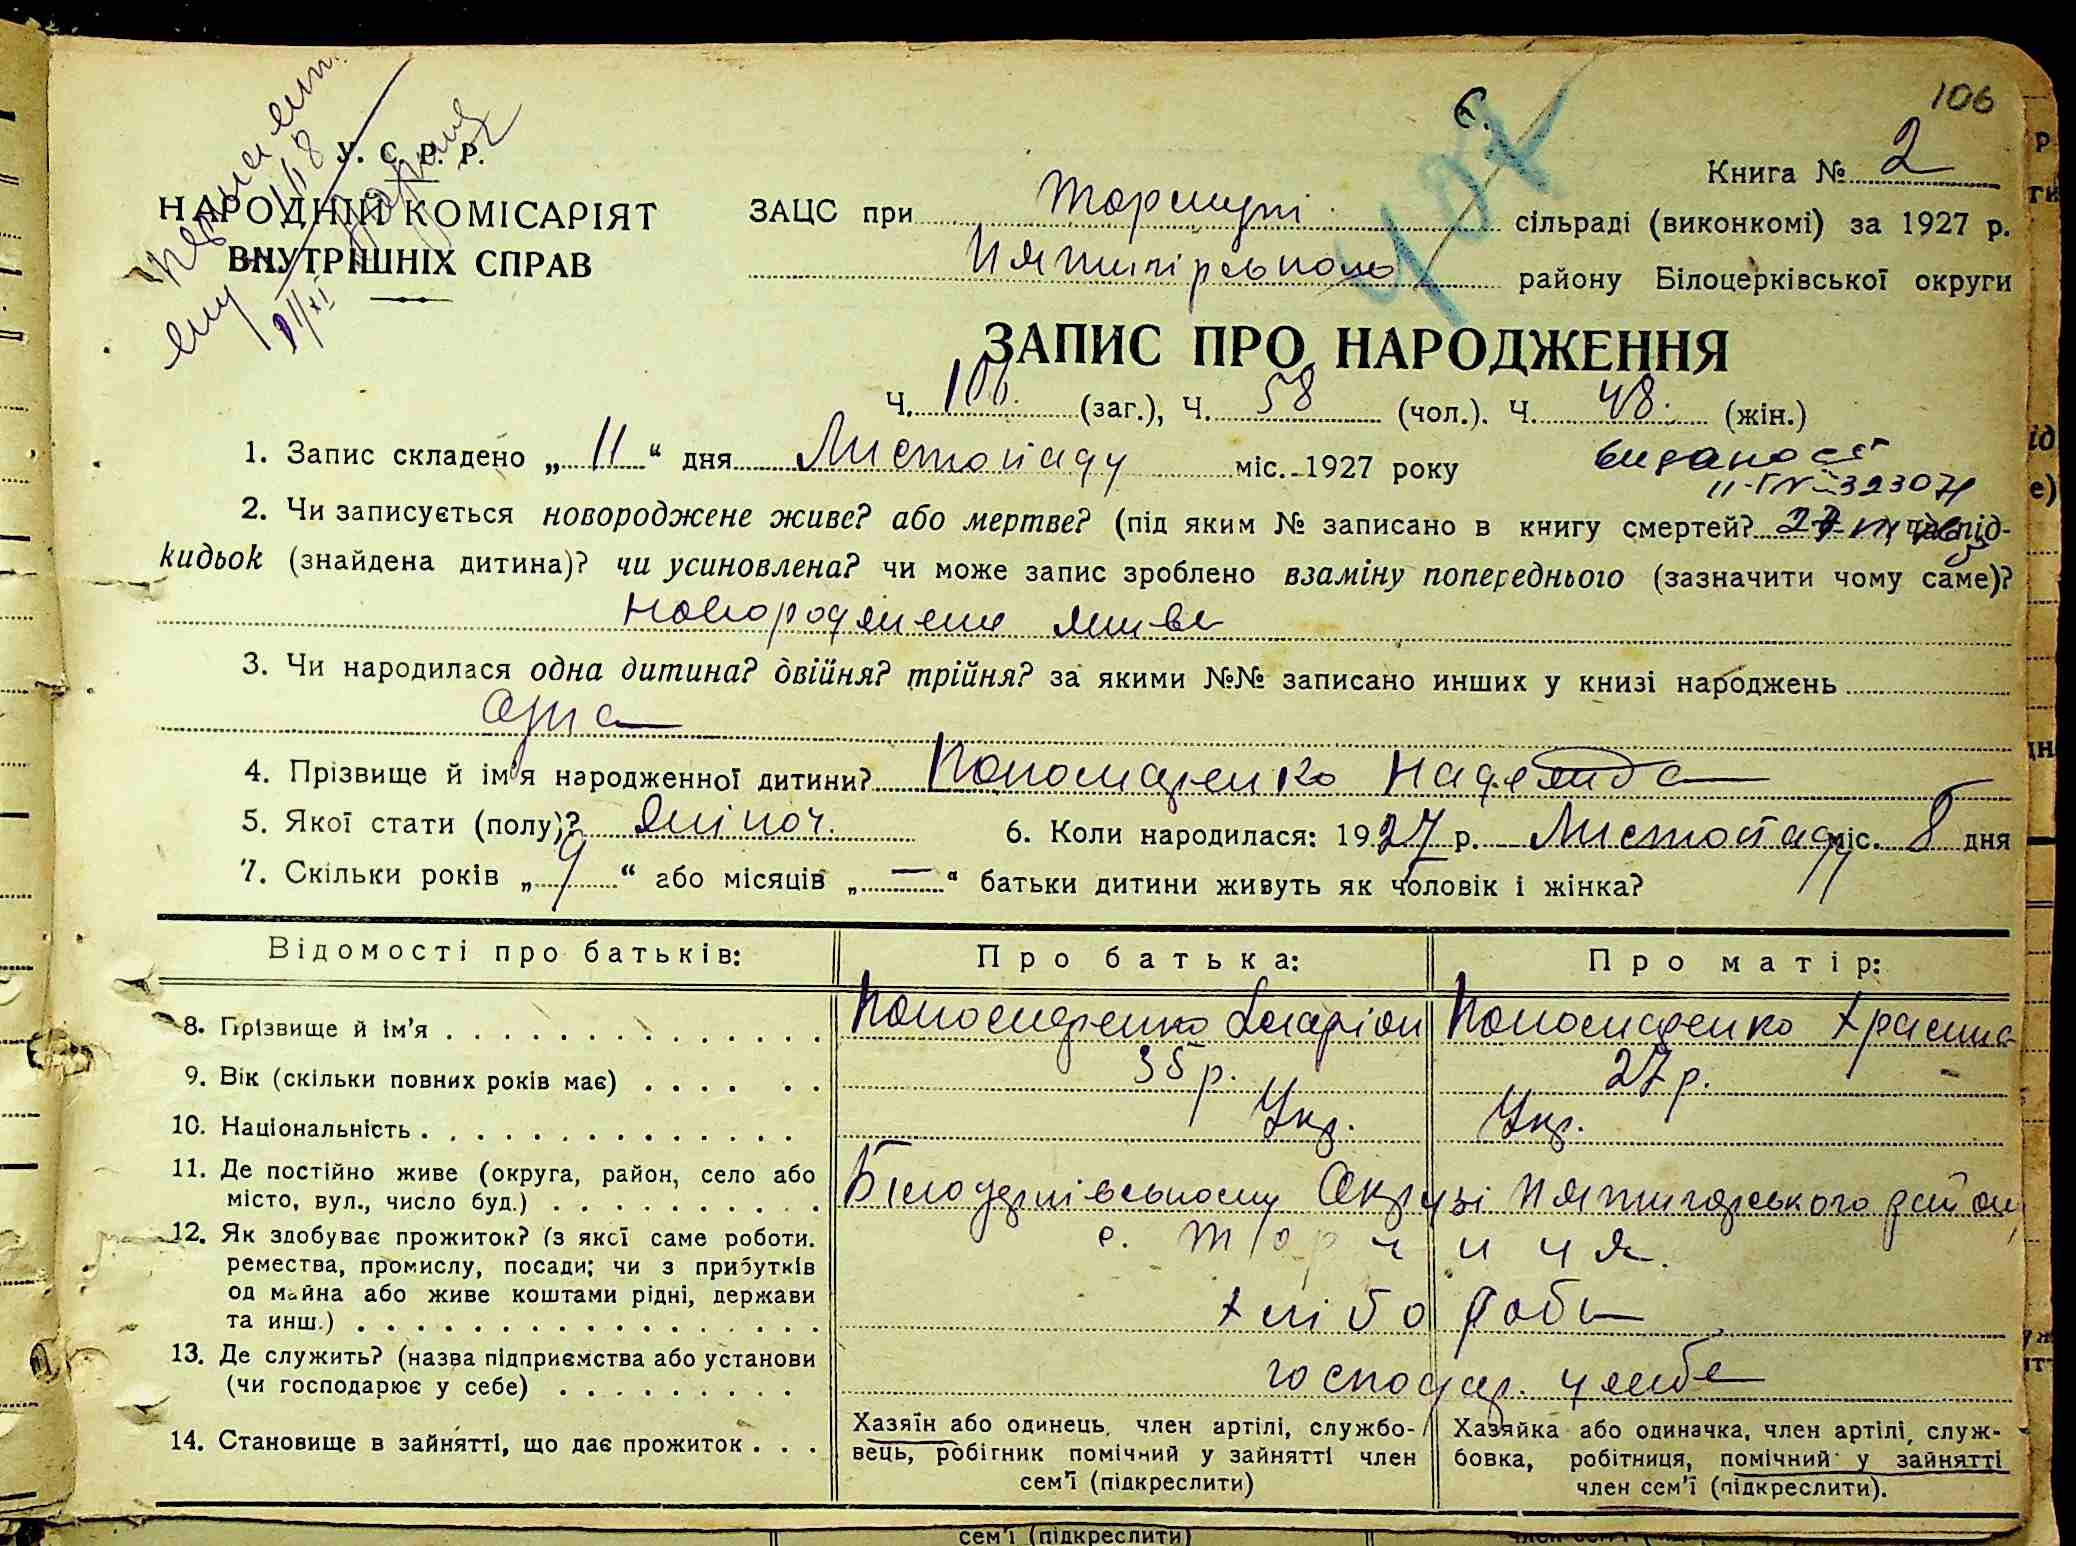 106
У. С. Р. Р.
НАРОДНІЙ КОМІСАРІЯТ
ВНУТРІШНІХ СПРАВ
407
Книга № 2
ЗАЦС при сільраді (виконкомі) за 1927 р.
району Білоцерківської округи
ЗАПИС ПРО НАРОДЖЕННЯ
Ч. 106. (заг.), Ч. 58 (чол.). Ч. 48. (жін.)
1. Запис складено „ 11 “ дня Листопаду міс. 1927 року
2. Чи записується новороджене живе? або мертве? (під яким № записано в книгу смертей? чи під-
кидьок (знайдена дитина)? чи усиновлена? чи може запис зроблено взаміну попереднього (зазначити чому саме)?
новорожене живе
3. Чи народилася одна дитина? двійня? трійня? за якими №№ записано инших у книзі народжень
одна
4. Прізвище й ім'я народженної дитини? Пономаренко Надежда
5. Якої стати (полу)? жіноч. 6. Коли народилася: 1927 р. Листопаду міс. 8 дня
7. Скільки років „ 9 “ або місяців „ — “ батьки дитини живуть як чоловік і жінка?
Відомості про батьків: Про батька: Про матір:
8. Прізвище й ім'я Пономаренко Іларіон Пономаренко
9. Вік (скільки повних років має) 35 р. 27 р.
10. Національність Укр. Укр.
11. Де постійно живе (округа, район, село або
місто, вул., число буд.) Білоцерківському Окрузі Пятигорського району
с. Торчиця.
12. Як здобуває прожиток? (з якої саме роботи.
ремества, промислу, посади; чи з прибутків
од майна або живе коштами рідні, держави
та инш.) хлібороби
13. Де служить? (назва підприємства або установи
(чи господарює у себе) господар. у себе
14. Становище в зайнятті, що дає прожиток
Хазяїн або одинець, член артілі, службо-
вець, робітник помічний у зайнятті член
сем'ї (підкреслити)
Хазяйка або одиначка, член артілі, служ-
бовка, робітниця, помічний у зайнятті
член сем'ї (підкреслити).
сем'ї (підкреслити)